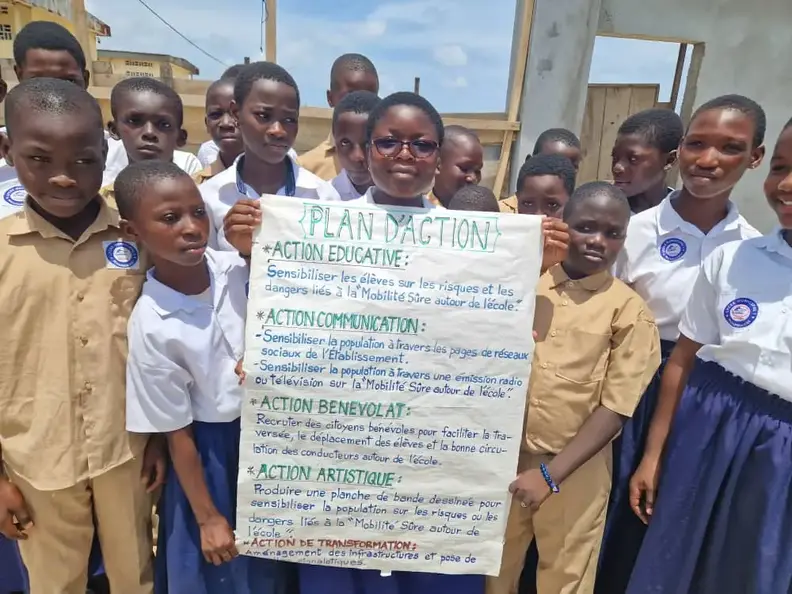 {PLAN D'ACTION}
*ACTION EDUCATIVE:
Sensibiliser les élèves sur les risques et les
dangers liés à la "Mobilité Sûre autour de l'école".
*ACTION COMMUNICATION:
-Sensibiliser la population à travers les pages de réseaux
sociaux de l'Etablissement.
-Sensibiliser la population à travers une émission radio
ou télévision sur la "Mobilité Sûre autour de l'école".
*ACTION BENEVOLAT:
Recruter des citoyens bénevoles pour faciliter la tra-
versée, le déplacement des élèves et la bonne circu-
lation des conducteurs autour de l'école.
*ACTION ARTISTIQUE:
Produire une planche de bande dessinée pour
sensibiliser la population sur les risques ou les
dangers liés à la "Mobilité Sûre autour de
l'école".
*ACTION DE TRANSFORMATION:
Aménagement des infrastructures et pose de